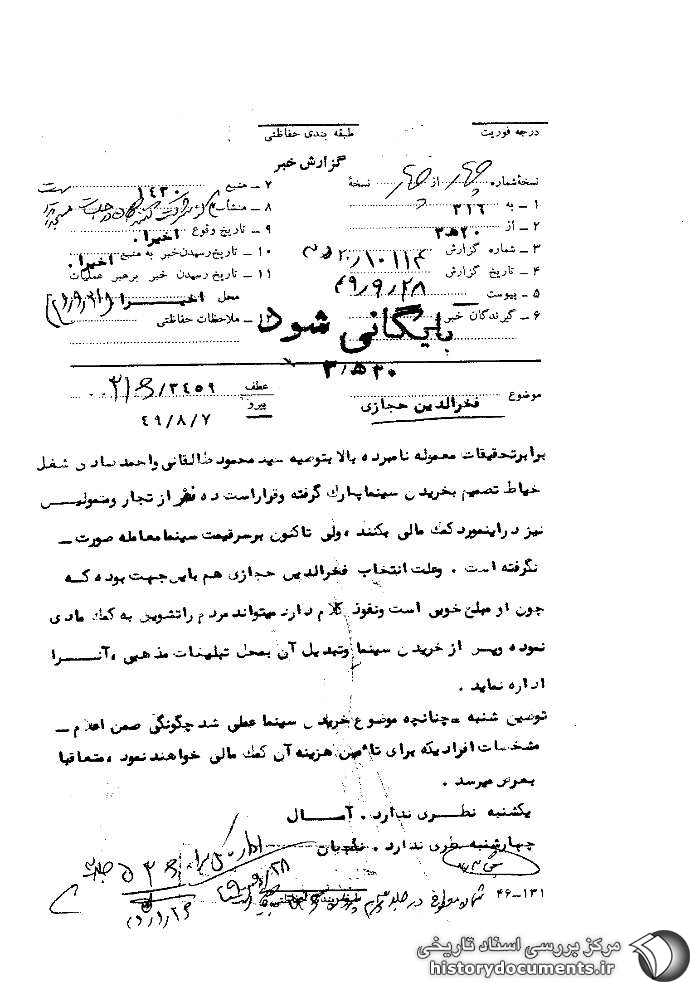 درجه فوریت
طبقه بندی حفاظتی
گزارش خبر
نسخهٔ شماره چهار از چهار نسخهٔ
۱ ـ به ۳۱۶
۲ ـ از ۲۰ﻫ۳
۳ ـ شماره گزارش ۱۰۱۱۴
۴ ـ تاریخ گزارش ۴۹٫۹٫۲۸
۵ ـ پیوست
۶ ـ گیرندگان خبر
۷ ـ منبع ۱۴۳۰
۸ ـ منشأ
۹ ـ تاریخ وقوع اخیرا .
۱۰ ـ تاریخ رسیدن خبر به منبع اخیرا .
۱۱ ـ تاریخ رسیدن خبر برهبر عملیات
محل اخیـــرا
۱۲ ـ ملاحظات حفاظتی
بایگانی شود
۲۰ﻫ۳
موضوع فخرالدین حجازی
عطف
پیرو
/۲۴۵۹
۴۹/۸/۷
برابر تحقیقات معموله نامبرده بالا بتوصیه سید محمود طالقانی و احمد صادق شغل
خیاط تصمیم بخریدن سینما پارک گرفته و قرار است ده نفر از تجار و متمولیـن
نیز در اینمورد کمک مالی بکنند ، ولی تاکنون بر سر قیمت سینما معامله صورت ـ
نگرفته است . وعلت انتخاب فخرالدین حجازی هم باین جهت بوده کـه
چون او مبلغ خوبی است و نفوذ کلام دارد میتواند مردم را تشویق به کمک مادی
نموده و پس از خریدن سینما و تبدیل آن بمحل تبلیغات مذهبی ، آنـــرا
اداره نماید .
توضیح شنبه ـ چنانچه موضوع خریدن سینما عملی شد چگونگی ضمن اعلام ـ
مشخصات افرادیکه برای تامین هزینه آن کمک مالی خواهند نمود ، متعاقبا
بعرض میرسد .
یکشنبه نظـری ندارد . آمـــال
چهارشنبه نظری ندارد .
۴۶-۱۳۱
طبقه بندی حفاظتی
مرکز بررسی اسناد تاریخی
historydocuments.ir